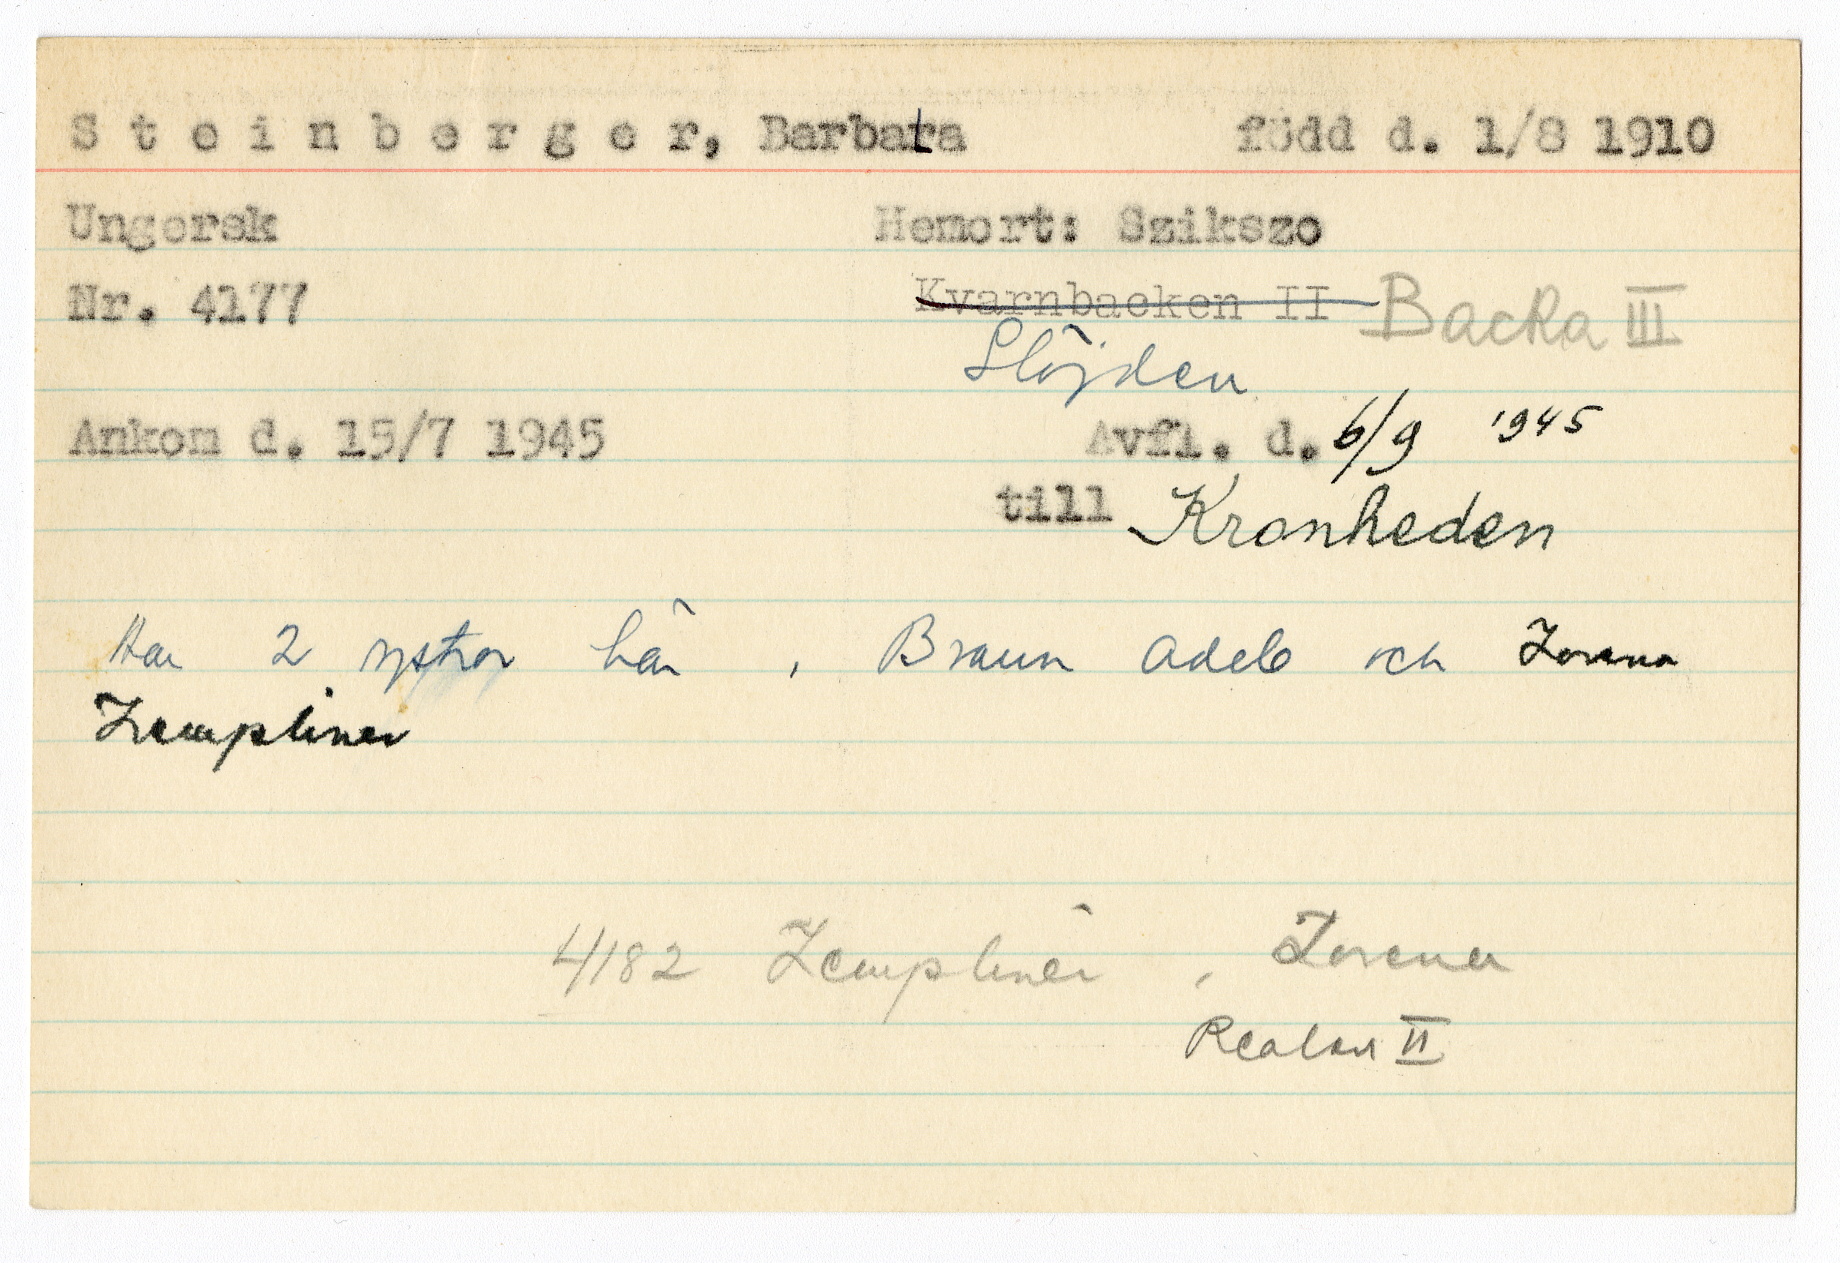 Steinberger, Barbara född d. 1/8 1910
Ungersk Hemort: Szikszo
Nr. 4177 Kvarnbacken II Backa III
Slöjden
Ankom d. 15/7 1945 Avfl. d. 6/9 1945
till Kronheden
Har 2 systrar här, Braun Adele och Lorena
Zempliner
4182 Zempliner, Lorena
Realsk II